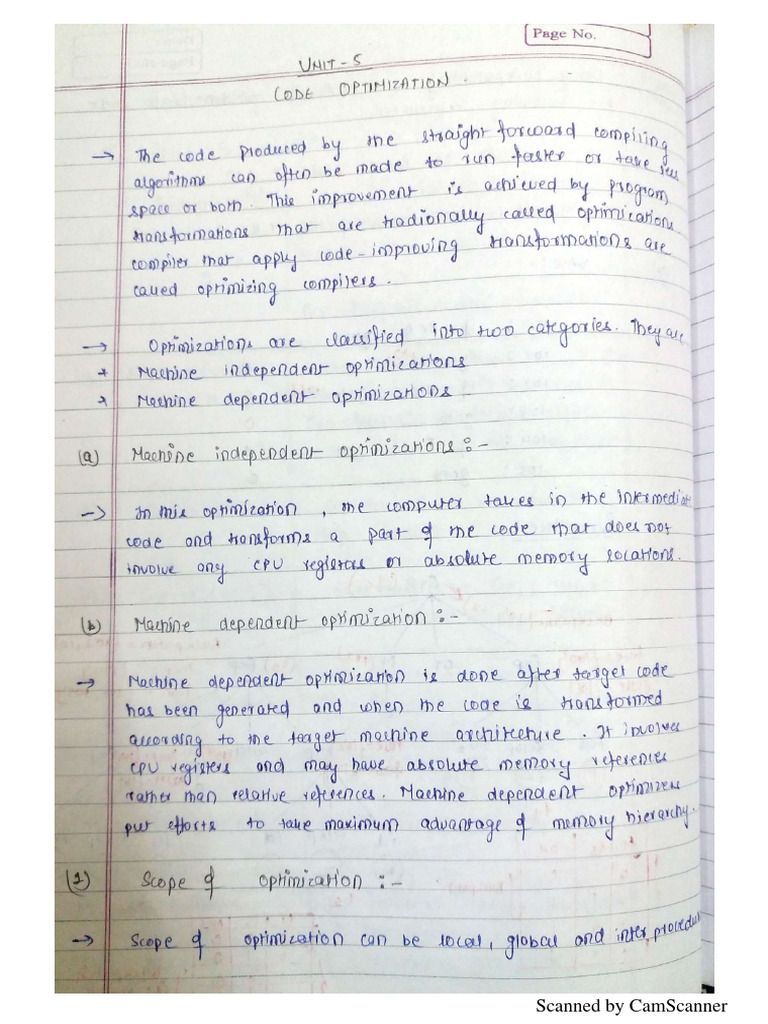 Page No.
UNIT-5
CODE OPTIMIZATION.
→ The code produced by the straight forward compiling
algorithms can often be made to run faster or take less
space or both. This improvement is achieved by program
transformations that are tradionally called optimizations.
compiler that apply code-improving transformations are
called optimizing compilers.
→ Optimizations are classified into two categories. They are
* Machine independent optimizations
* Machine dependent optimizations
(a) Machine independent optimizations:-
→ In this optimization, the computer takes in the intermediate
code and transforms a part of the code that does not
involve any CPU registers or absolute memory locations.
(b) Machine dependent optimization:-
→ Machine dependent optimization is done after target code
has been generated and when the code is transformed
according to the target machine architecture. It involves
CPU registers and may have absolute memory references
rather than relative references. Machine dependent optimizers
put efforts to take maximum advantage of memory hierarchy.
(1) Scope of optimization:-
→ Scope of optimization can be local, global and inter procedural
Scanned by CamScanner